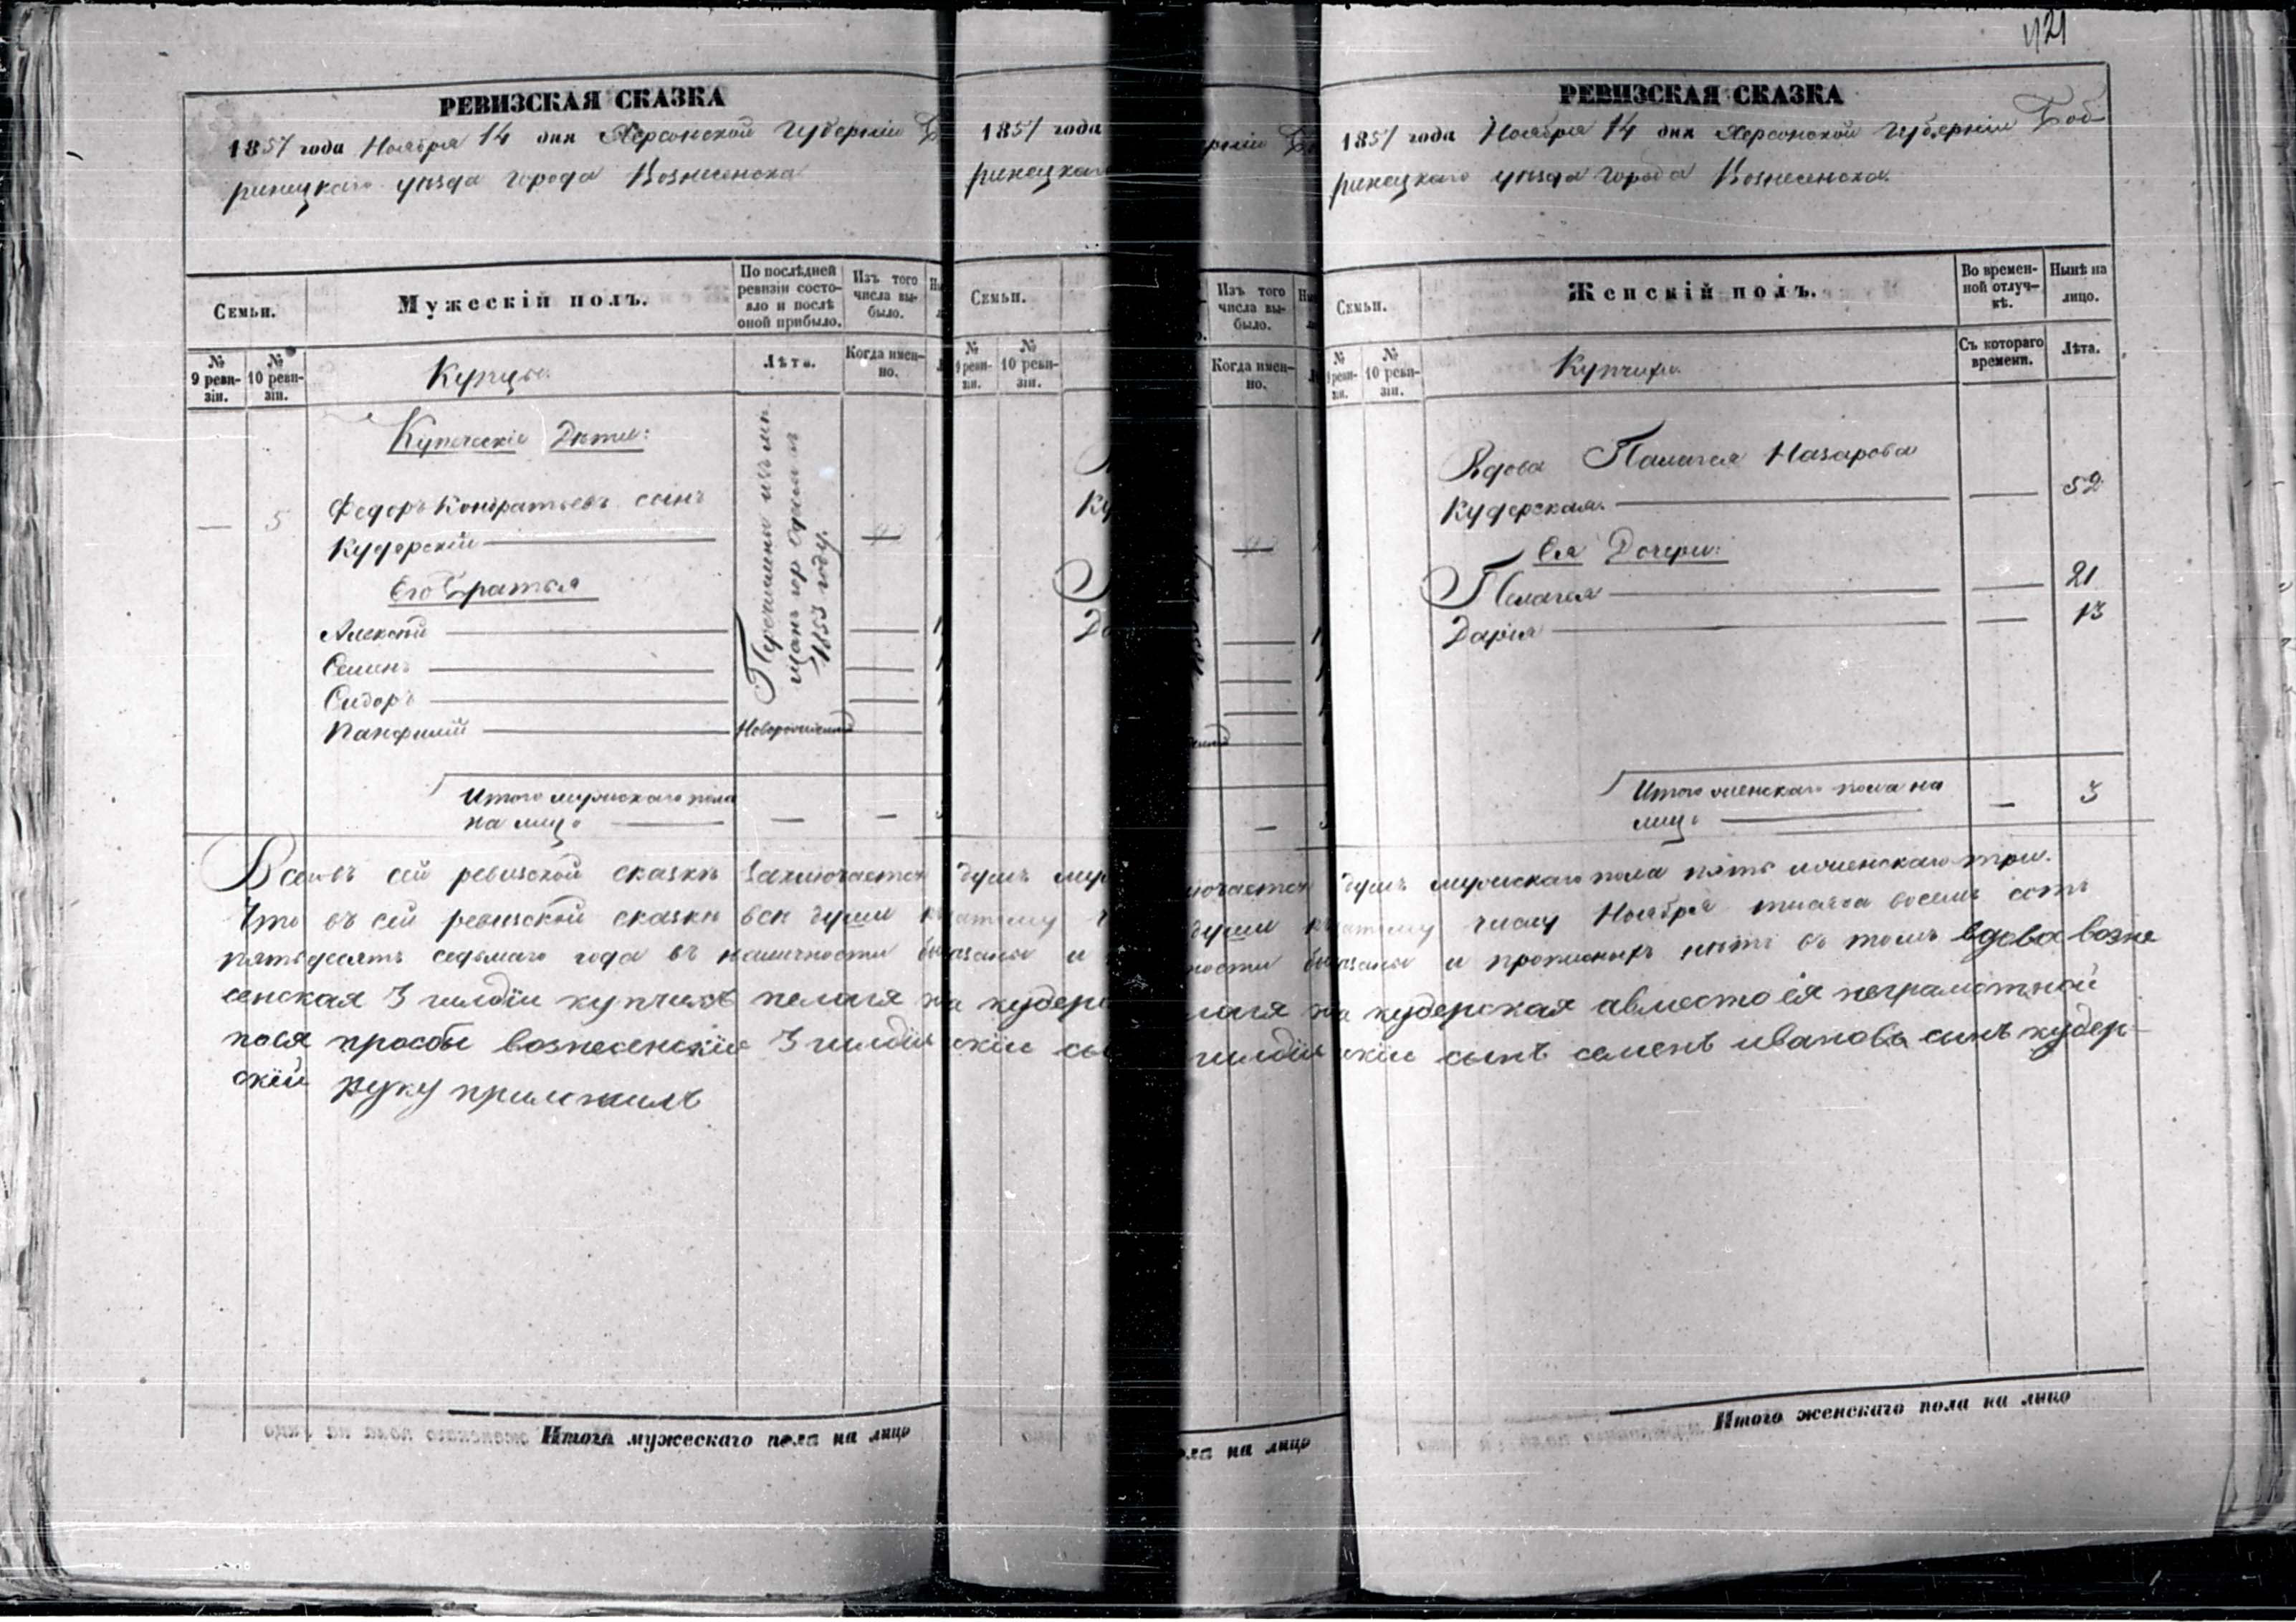 421
РЕВИЗСКАЯ СКАЗКА
1857 года Ноября 14 дня Херсонской Губерніи Б
ринецкаго уѣзда города Вознесенска
Семьи.
Мужескій полъ.
По послѣдней ревизіи состояло и послѣ оной прибыло.
Изъ того числа выбыло.
№ 9 ревизіи.
№ 10 ревизіи.
Купцы.
Лѣта.
Когда именно.
Купеческіе Дѣти:
— 5
Федоръ Кондратьевъ сынъ
Кудерскій
Его Братья
Алексѣй
Семенъ
Сидоръ
Панфилій
Перечислены изъ мѣ
щанъ гор Одессы въ
1853 году.
Новорожденный
Итого мужескаго пола
на лицо — —
Итого мужескаго пола на лицо
1857 года
ринецкаго
Семьи.
№ 9 ревизіи.
№ 10 ревизіи.
Ку
Да
Изъ того числа выбыло.
Когда именно.
пола на лицо
РЕВИЗСКАЯ СКАЗКА
1857 года Ноября 14 дня Херсонской Губерніи Боб
ринецкаго уѣзда города Вознесенска.
Семьи.
Женскій полъ.
Во временной отлучкѣ.
Нынѣ на лицо.
№ 9 ревизіи.
№ 10 ревизіи.
Купчихи.
Съ котораго времени.
Лѣта.
Вдова Палагея Назарова
Кудерская. — 52
Ея Дочери:
Пелагея — 21
Дарія — 13
Итого женскаго пола на
лицо — 3
Всего въ сей ревизской сказкѣ заключается душъ мужескаго пола пять и женскаго три.
Что въ сей ревизской сказкѣ всѣ души къ числу Ноября тысяча восемь сотъ
пятьдесятъ седьмаго года въ наличности и нѣтъ въ томъ вдова возне
сенская 3 гилдіи купчиха пелагя кудерская авместо ея неграмотной
поея прозбы вознесенскіи 3 гилдіи сынъ семенъ ивановъ сынъ кудер
скіи руку приложилъ
Итого женскаго пола на лицо